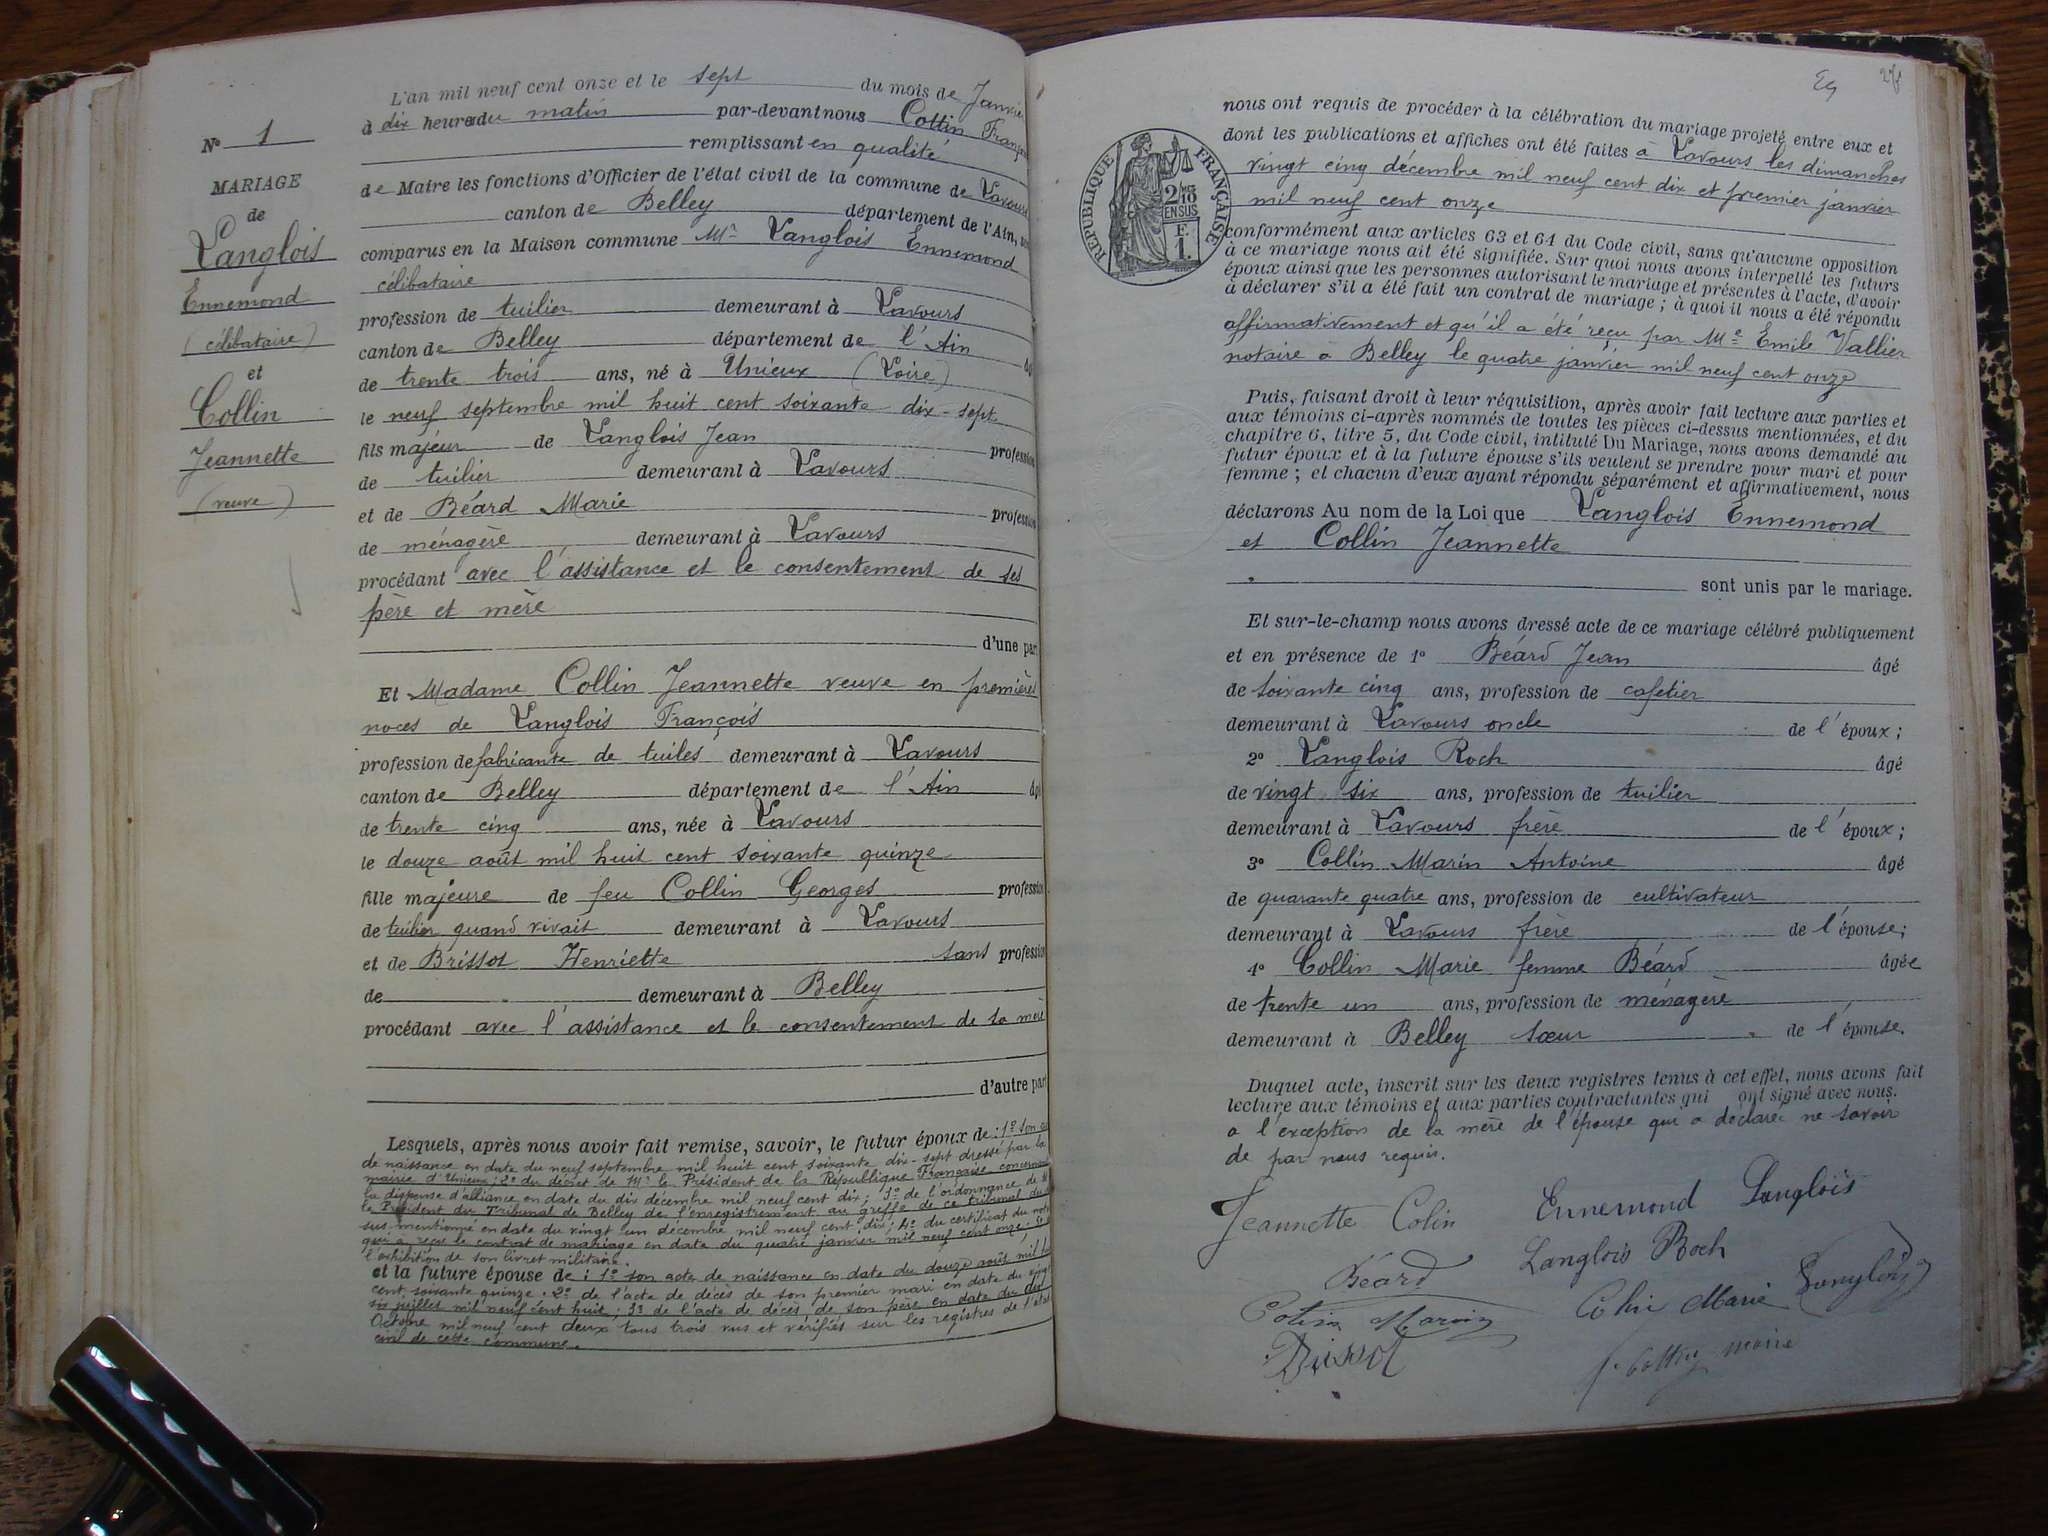 L'an mil neuf cent onze et le sept du mois de Janvier
à dix heures du matin par-devant nous Collin François
remplissant en qualité
de Maire les fonctions d'Officier de l'état civil de la commune de Lavours
canton de Belley département de l'Ain, sont
comparus en la Maison commune Mr Langlois Ennemond
célibataire
profession de tuilier demeurant à Lavours
canton de Belley département de l'Ain âgé
de trente trois ans, né à Unieux (Loire)
le neuf septembre mil huit cent soixante dix-sept
fils majeur de Langlois Jean profession
de tuilier demeurant à Lavours
et de Béard Marie profession
de ménagère demeurant à Lavours
procédant avec l'assistance et le consentement de ses
père et mère
d'une part
Et Madame Collin Jeannette veuve en premières
noces de Langlois François
profession de fabricante de tuiles demeurant à Lavours
canton de Belley département de l'Ain âgé
de trente cinq ans, née à Lavours
le douze août mil huit cent soixante quinze
fille majeure de feu Collin Georges profession
de tuilier quand vivait demeurant à Lavours
et de Brissot Henriette sans profession
de demeurant à Belley
procédant avec l'assistance et le consentement de sa mère
d'autre part
Lesquels, après nous avoir fait remise, savoir, le futur époux de : 1º son acte
de naissance en date du neuf septembre mil huit cent soixante dix-sept dressé par la
mairie d'Unieux ; 2º du décret de Mr le Président de la République Française concernant
la dispense d'alliance en date du dix décembre mil neuf cent dix ; 3º de l'ordonnance de Mr
le Président du Tribunal de Belley de l'enregistrement au greffe de ce tribunal du
sus-mentionné en date du vingt un décembre mil neuf cent dix ; 4º du certificat du notaire
qui a reçu le contrat de mariage en date du quatre janvier mil neuf cent onze.
l'exhibition de son livret militaire.
et la future épouse de : 1º son acte de naissance en date du douze août mil huit
cent soixante quinze. 2º de l'acte de décès de son premier mari en date du vingt
six juillet mil neuf cent huit ; 3º de l'acte de décès de son père en date du dix
Octobre mil neuf cent deux tous trois vus et vérifiés sur les registres de l'état
civil de cette commune.
Nº 1
MARIAGE
de
Langlois
Ennemond
(célibataire)
et
Collin
Jeannette
(veuve)
RÉPUBLIQUE FRANÇAISE
2/10
EN SUS
F.
1.
nous ont requis de procéder à la célébration du mariage projeté entre eux et
dont les publications et affiches ont été faites à Lavours les dimanches
vingt cinq décembre mil neuf cent dix et premier janvier
mil neuf cent onze
conformément aux articles 63 et 64 du Code civil, sans qu'aucune opposition
à ce mariage nous ait été signifiée. Sur quoi nous avons interpellé les futurs
époux ainsi que les personnes autorisant le mariage et présentes à l'acte, d'avoir
à déclarer s'il a été fait un contrat de mariage ; à quoi il nous a été répondu
affirmativement et qu'il a été reçu par Me Emile Vallier
notaire à Belley le quatre janvier mil neuf cent onze
Puis, faisant droit à leur réquisition, après avoir fait lecture aux parties et
aux témoins ci-après nommés de toutes les pièces ci-dessus mentionnées, et du
chapitre 6, titre 5, du Code civil, intitulé Du Mariage, nous avons demandé au
futur époux et à la future épouse s'ils veulent se prendre pour mari et pour
femme ; et chacun d'eux ayant répondu séparément et affirmativement, nous
déclarons Au nom de la Loi que Langlois Ennemond
et Collin Jeannette
sont unis par le mariage.
Et sur-le-champ nous avons dressé acte de ce mariage célébré publiquement
et en présence de 1º Béard Jean âgé
de soixante cinq ans, profession de cafetier
demeurant à Lavours oncle de l'époux ;
2º Langlois Roch âgé
de vingt six ans, profession de tuilier
demeurant à Lavours frère de l'époux ;
3º Collin Marin Antoine âgé
de quarante quatre ans, profession de cultivateur
demeurant à Lavours frère de l'épouse ;
4º Collin Marie femme Béard âgée
de trente un ans, profession de ménagère
demeurant à Belley sœur de l'épouse.
Duquel acte, inscrit sur les deux registres tenus à cet effet, nous avons fait
lecture aux témoins et aux parties contractantes qui ont signé avec nous.
à l'exception de la mère de l'épouse qui a déclaré ne savoir
de par nous requis.
Jeannette Colin Ennemond Langlois
Béard Langlois Roch
Colin Marin Colin Marie Langlois
Brissot maire